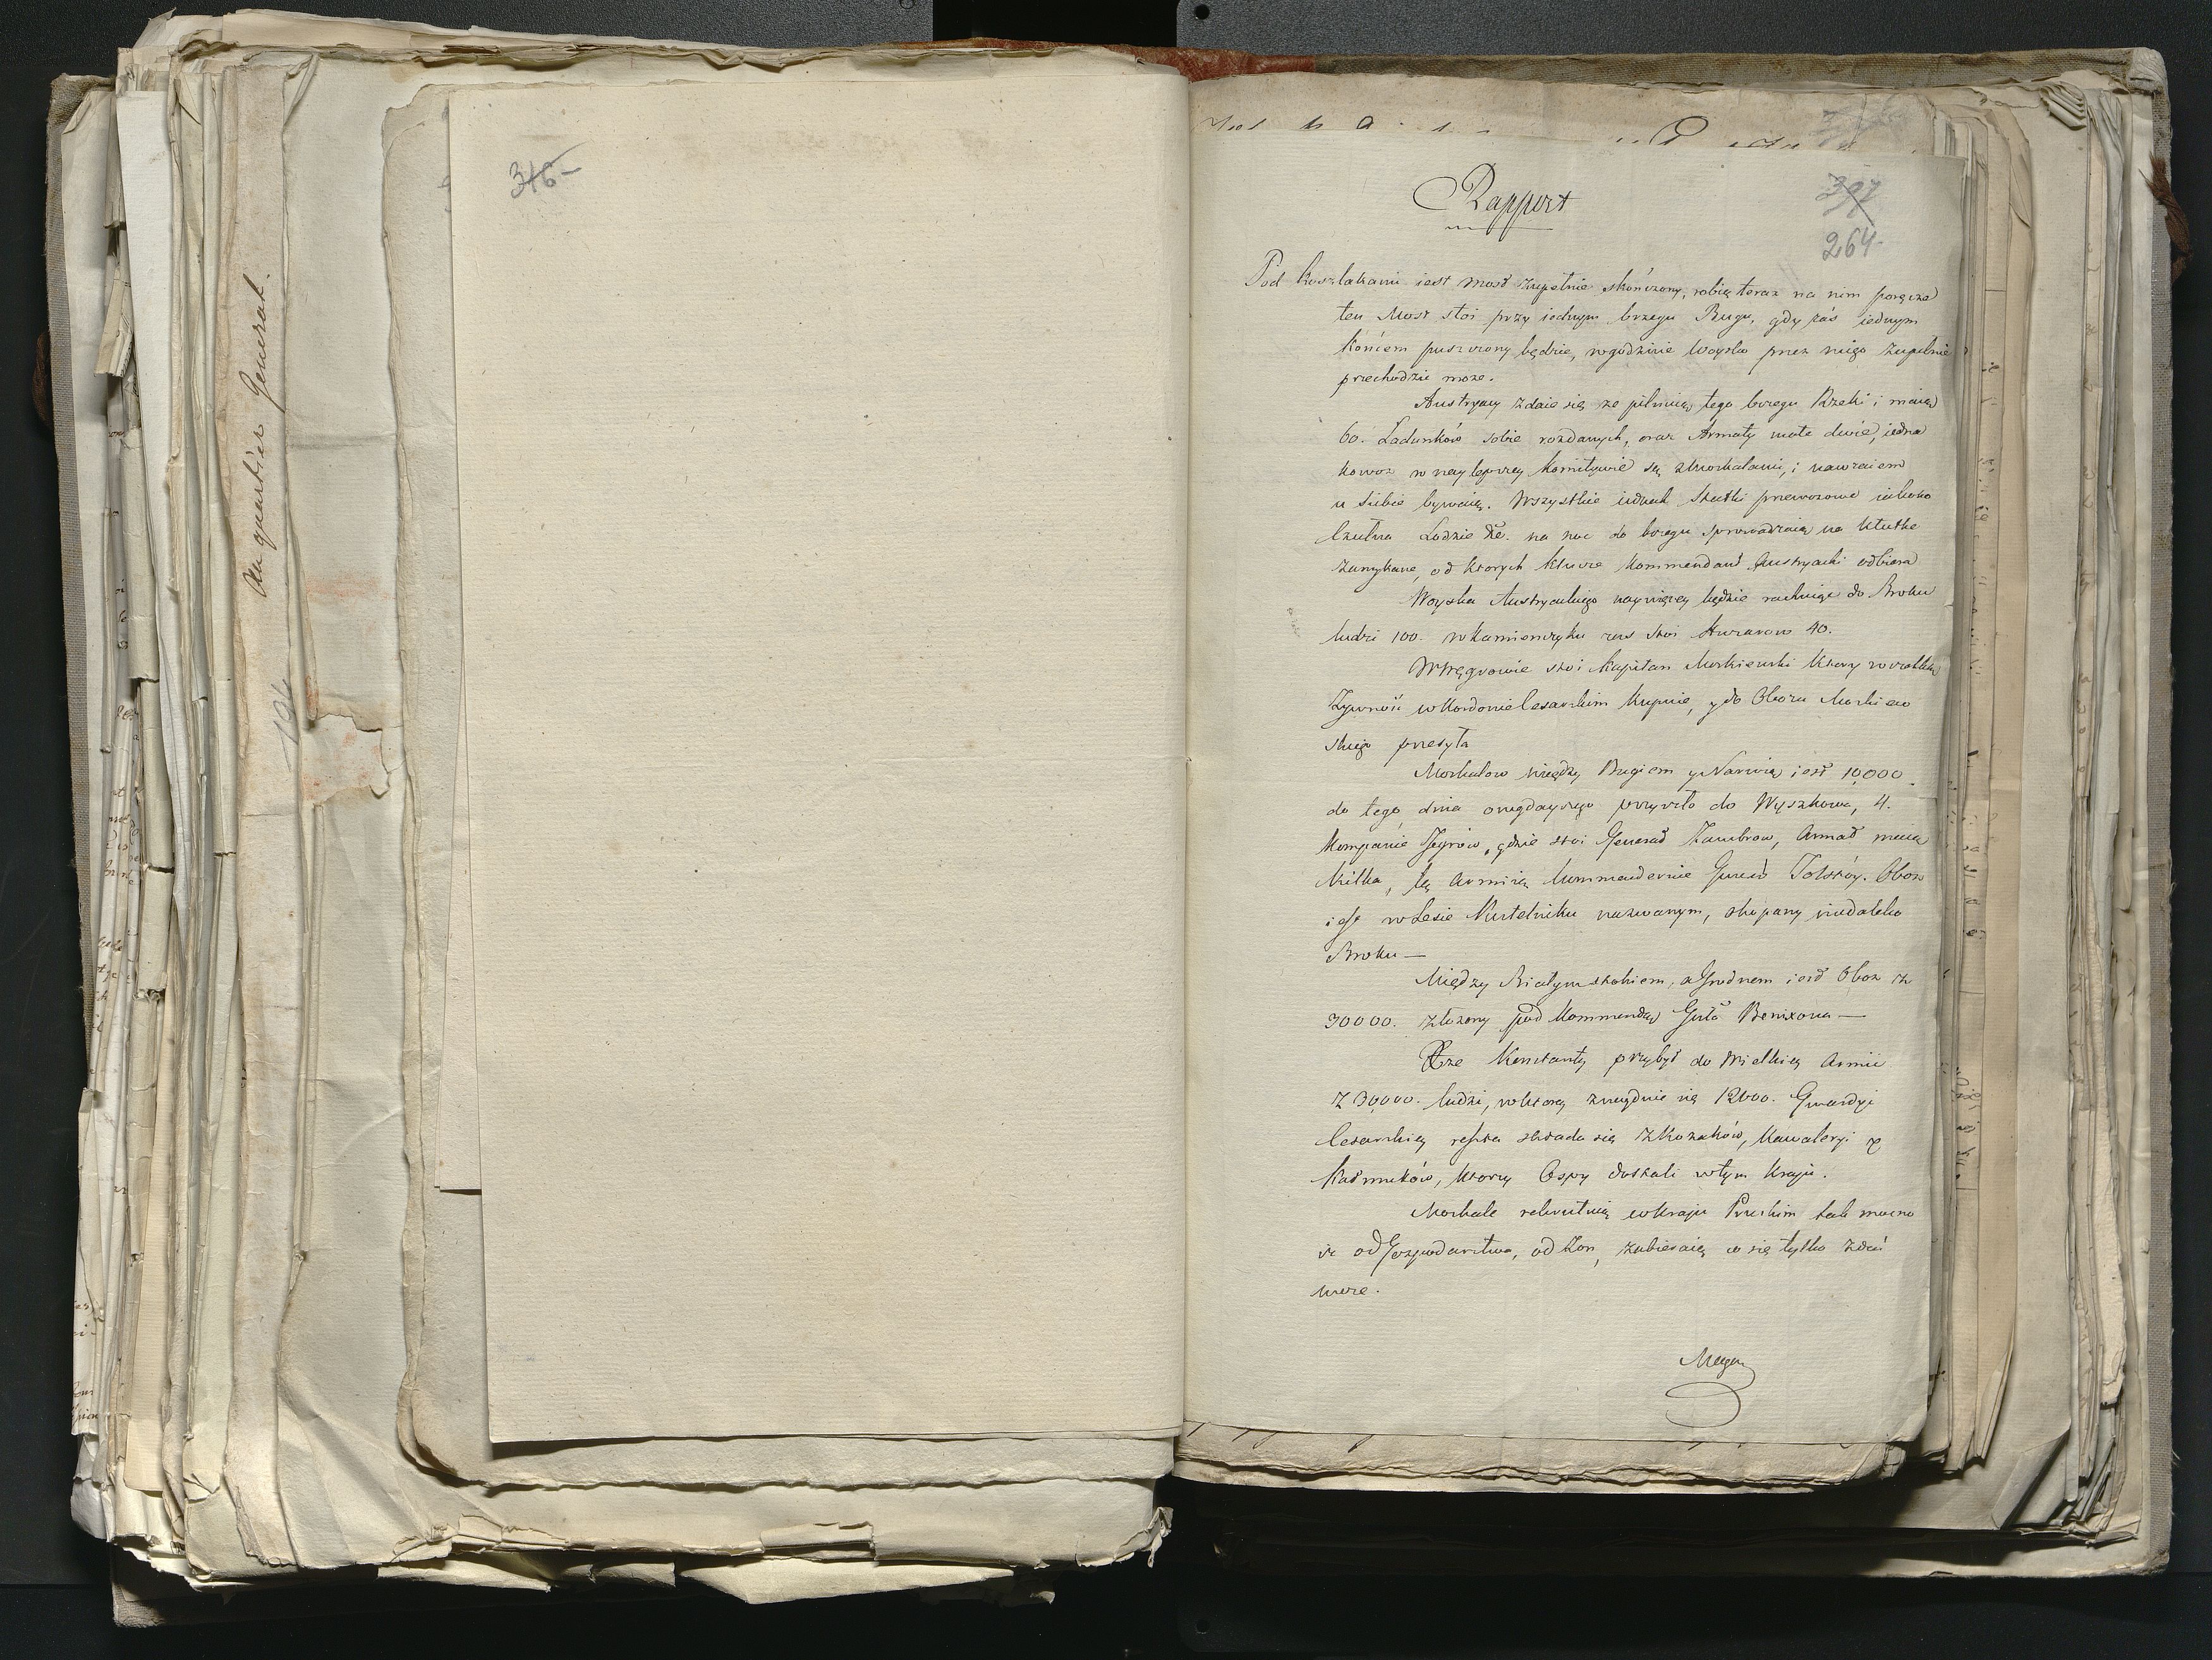 Au quartier General.
316-
Rapport
397
264-
Pod Koszlakami iest Most zupełnie skończony, robią teraz na nim poręcze
ten Most stoi przy iednym brzegu Bugu, gdy zaś iednym
końcem puszczony będzie, w godzinie Woysko przez niego zupełnie
przechodzić może.
Austryacy zdaie się ze pilnuią tego brzegu Rzeki i maią
60. Ładunków sobie rozdanych, oraz Armaty małe dwie, iedna
kowoż w naylepszey komitywie są z Moskalami, i nawzaiem
u siebie bywaią. Wszystkie iednak Statki przewozowe iakoto
Czułna Łodzie &c. na noc do brzegu sprowadzaią na Kłutke
zamykane, od ktorych Klucze Kommendant Austryacki odbiera
Woyska Austryackiego naywięcey będzie rachuiąc do Broku
ludzi 100. w Kamienczyku zas stoi Huzarow 40.
W Węgrowie stoi Kapitan Moskiewski Ktory wszelką
Zywność w Kordonie Cesarskim kupuie, y do Obozu Moskiew
skiego przesyła
Moskalow między Bugiem y Narwią iest 10,000
do tego dnia onegdayszego przyszło do Wyszkowa, 4.
Kompanie Jegrów, gdzie stoi Generał Zambrow, Armat maią
Kilka, tą Armią kommenderuie Generał Tołstóy. Oboz
iest w Lesie Kustelniku nazwanym, okopany niedaleko
Broku —
Między Białymstokiem, a Grodnem iest Oboz z
30000. złozony pod Kommendą Gnła Benixona —
Xze Konstanty przybył do Wielkiey Armii
z 30,000. ludzi, w ktorey znayduie się 12000. Gwardyi
Cesarskiey reszta składa się z Kozaków, Kawaleryi y
Kałmuków, ktorzy Ospy dostali w tym Kraju.
Moskale rekrutuią w kraju Pruskim tak mocno
iż od Gospodarstwa, od Zon, zabieraią co się tylko zdać
może.